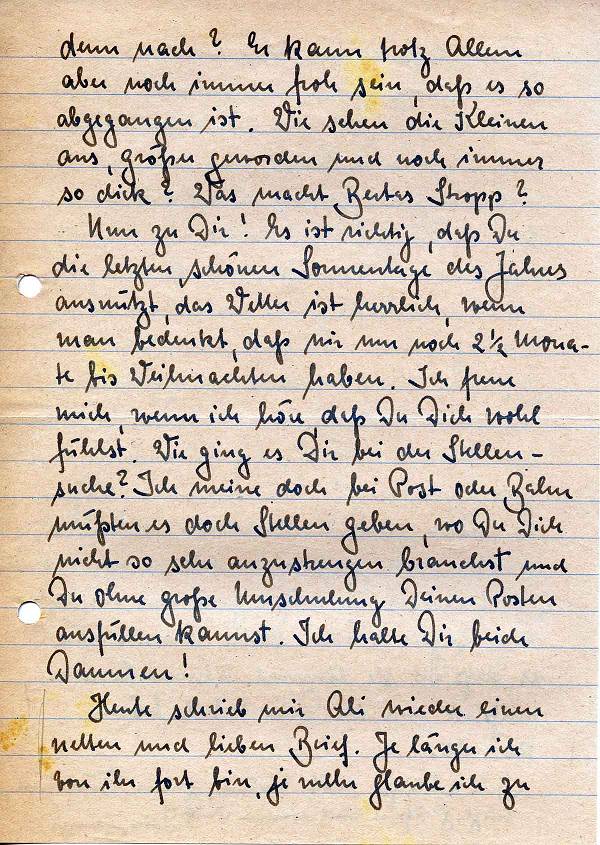 denn nach? Er kann trotz Allem
aber noch immer froh sein, daß es so
abgegangen ist. Wie sehen die Kleinen
aus, größer geworden und noch immer
so dick? Was macht Bertas Stropp?
Nun zu Dir! Es ist richtig, daß Du
die letzten, schönen Sonnentage des Jahres
ausnützt, das Wetter ist herrlich, wenn
man bedenkt, daß wir nur noch 2½ Mona-
te bis Weihnachten haben. Ich freue
mich, wenn ich höre, daß Du Dich wohl
fühlst. Wie ging es Dir bei der Stellen-
suche? Ich meine doch bei Post oder Bahn
müßten es doch Stellen geben, wo Du Dich
nicht so sehr anzustrengen brauchst und
Du ohne große Umschulung Deinen Posten
ausfüllen kannst. Ich halte Dir beide
Daumen!
Heute schrieb mir Obi wieder einen
netten und lieben Brief. Je länger ich
von ihr fort bin, je mehr glaube ich zu